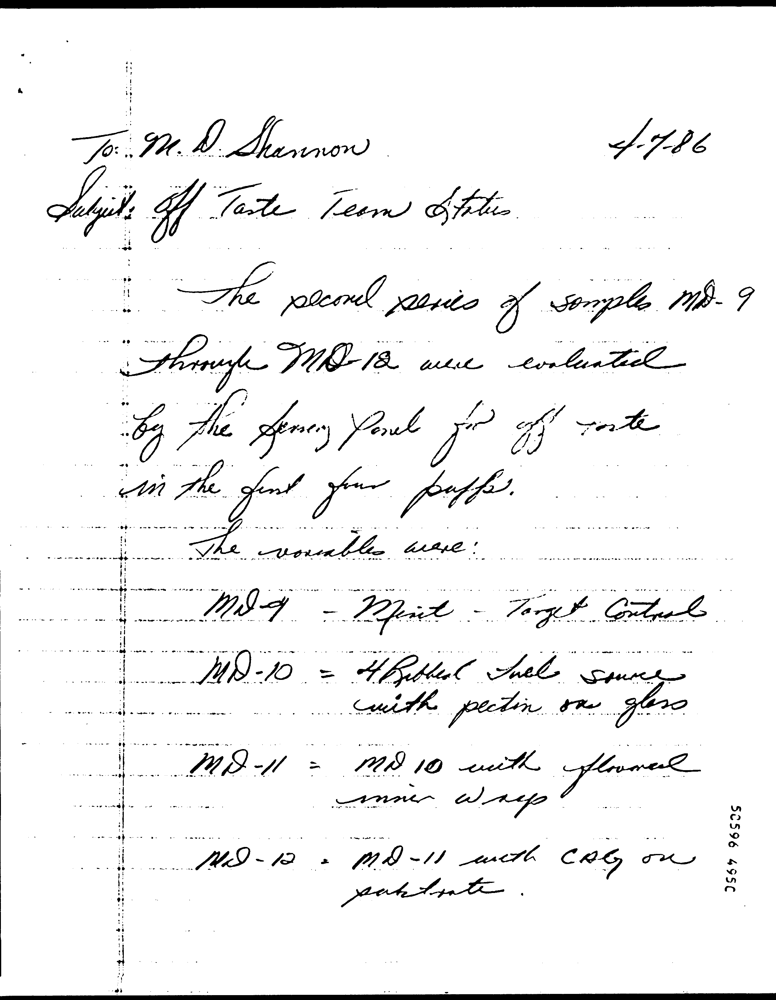 To: M. D. Shannon 4-7-86
Subject: Off Taste Team Status
The second series of samples MD-9
through MD-12 were evaluated
by the Sensory Panel for off taste
in the first four puffs.
The variables were:
MD-9 - Merit - Target Control
MD-10 = 4 Ribbed fuel source
with pectin on glass
MD-11 = MD 10 with flavored
inner wrap
MD-12 = MD-11 with on
substrate.
50596 4950